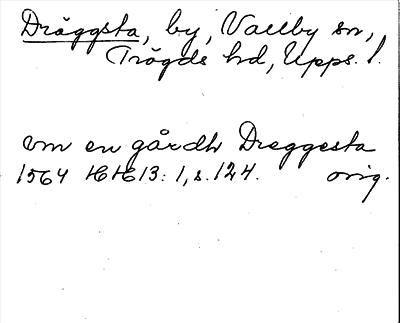 Dräggsta, by, Vallby sn,
Trögds hd, Upps. l.
vm en gårdh Dreggesta
1564 HH 13: 1, s. 124. orig.